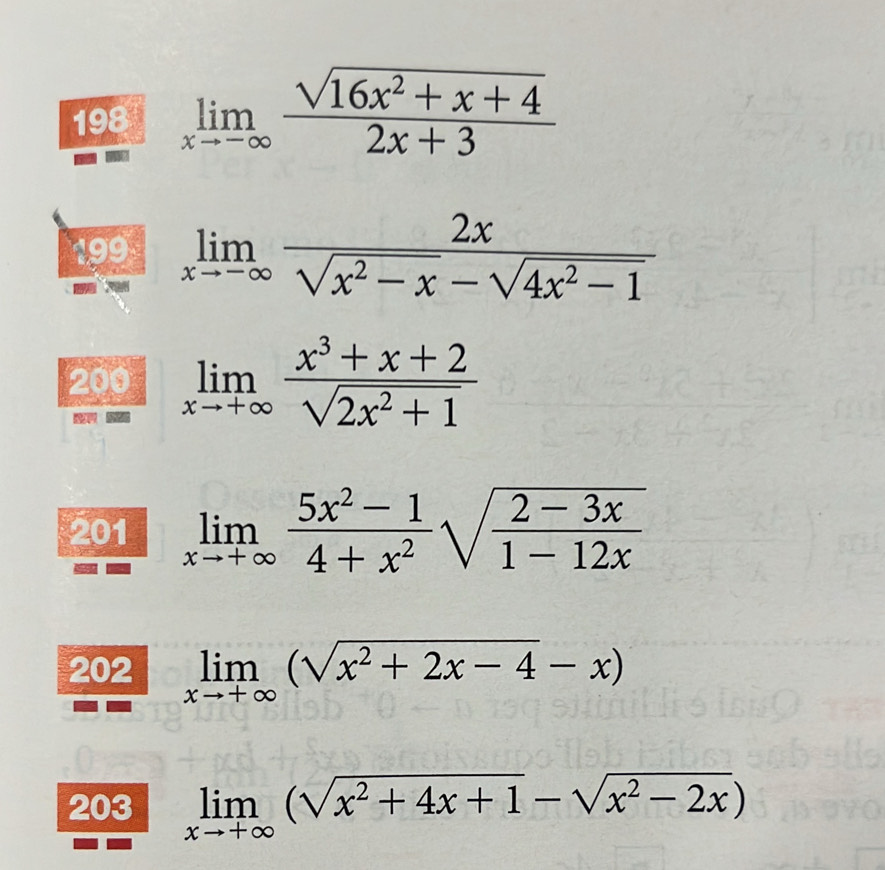 198 lim x→−∞ √(16x² + x + 4) / (2x + 3)
199 lim x→−∞ 2x / (√(x² − x) − √(4x² − 1))
200 lim x→+∞ (x³ + x + 2) / √(2x² + 1)
201 lim x→+∞ (5x² − 1) / (4 + x²) √((2 − 3x) / (1 − 12x))
202 lim x→+∞ (√(x² + 2x − 4) − x)
203 lim x→+∞ (√(x² + 4x + 1) − √(x² − 2x))